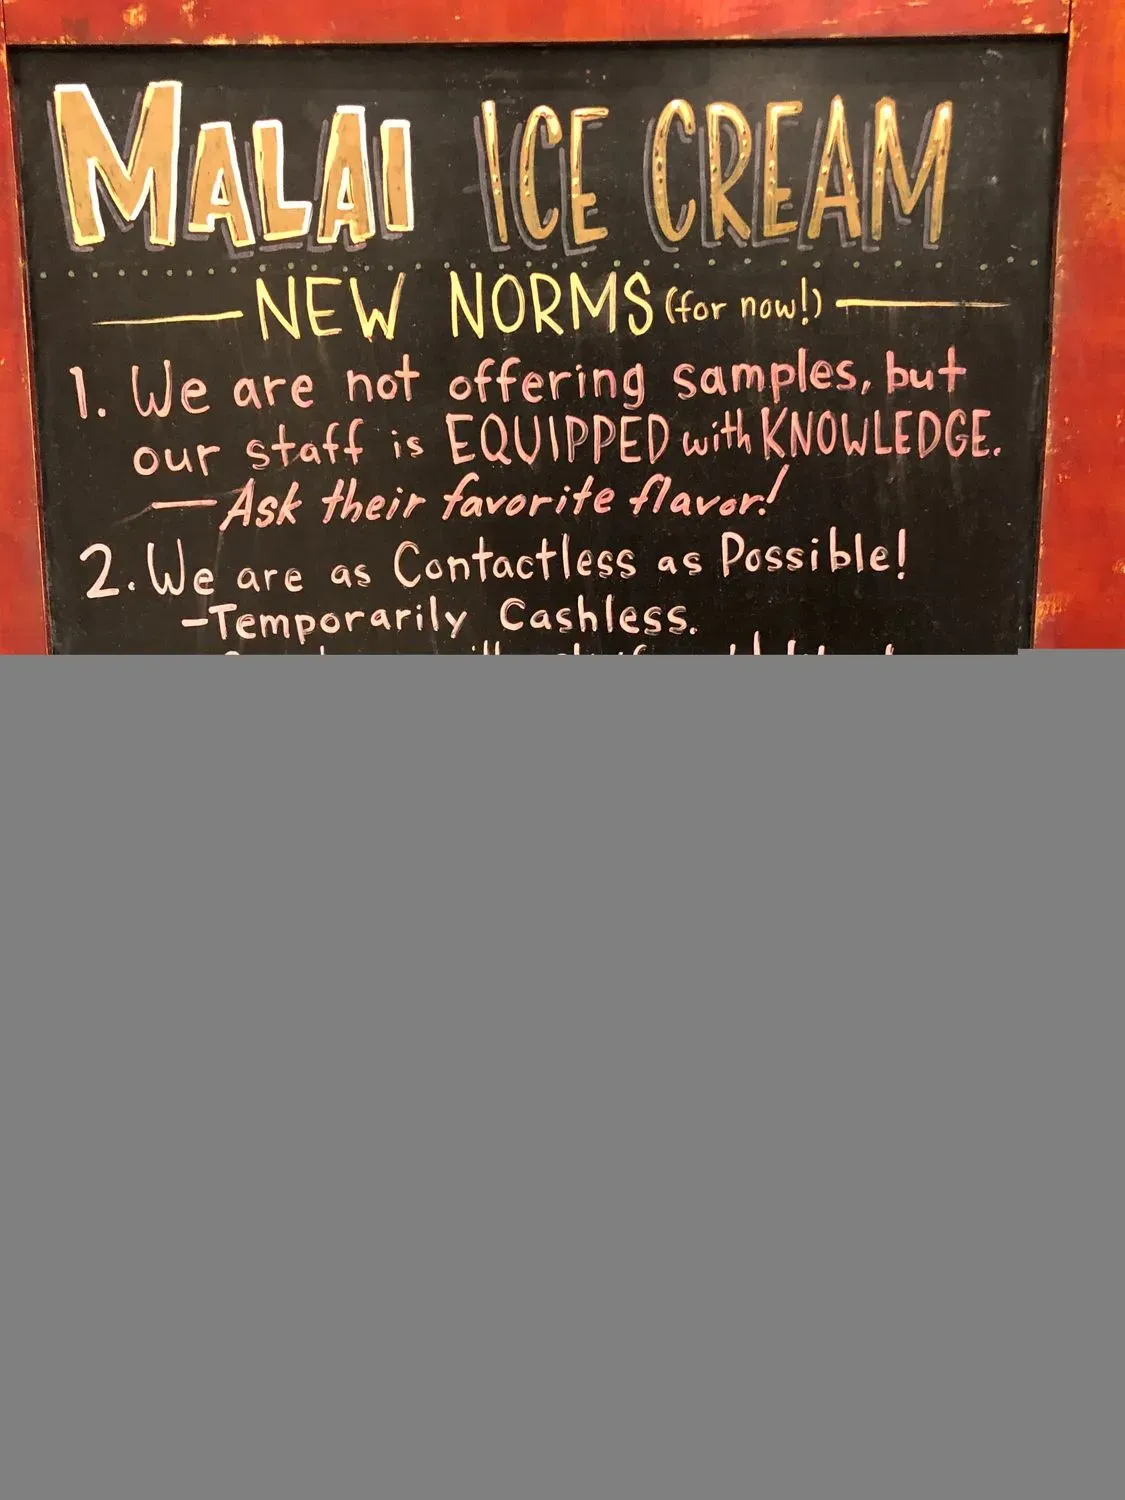 MALAI ICE CREAM
NEW NORMS (for now!)
1. We are not offering samples, but
our staff is EQUIPPED with KNOWLEDGE.
— Ask their favorite flavor!
2. We are as Contactless as Possible!
-Temporarily Cashless.